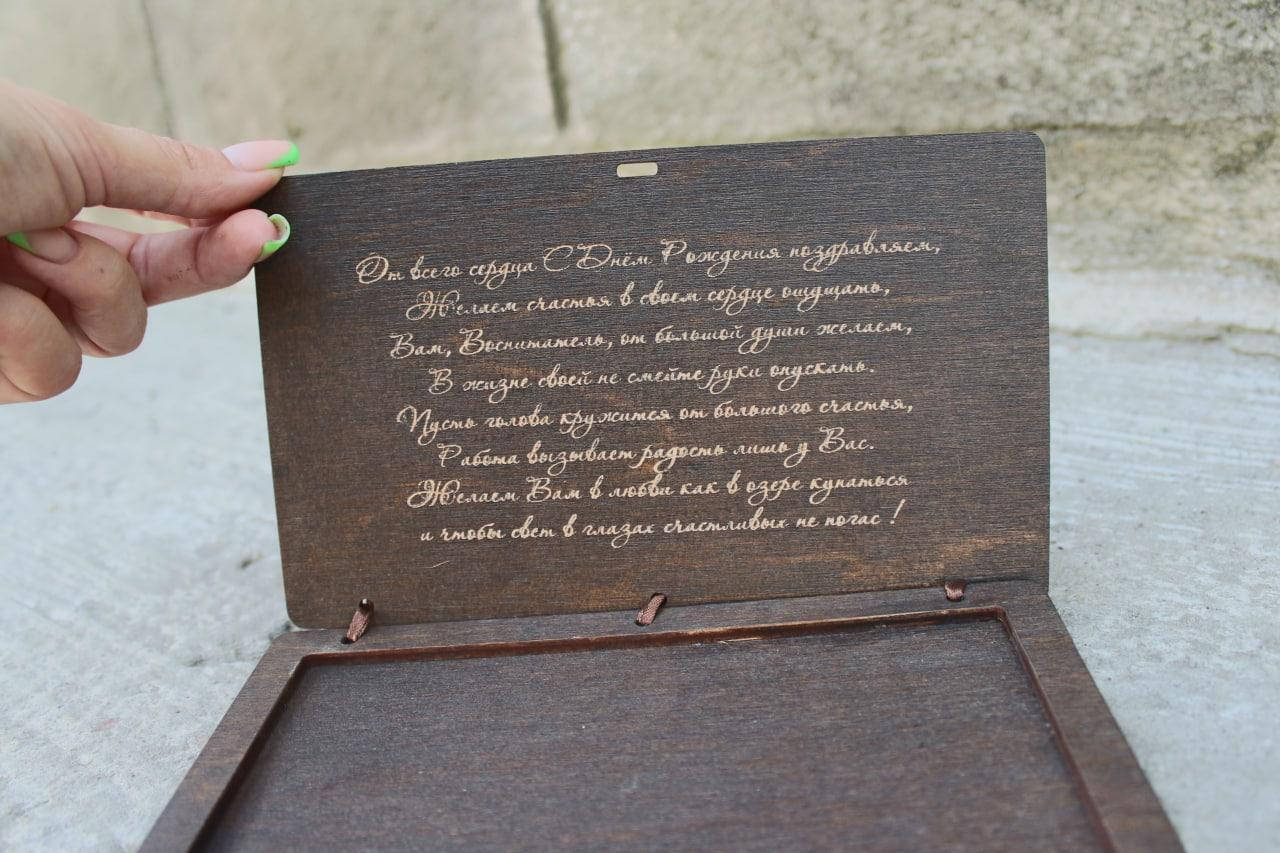 От всего сердца С Днём Рождения поздравляем,
Желаем счастья в своем сердце ощущать,
Вам, Воспитатель, от большой души желаем,
В жизне своей не смейте руки опускать.
Пусть голова кружится от большого счастья,
Работа вызывает радость лишь у Вас.
Желаем Вам в любви как в озере купаться
и чтобы свет в глазах счастливых не погас !